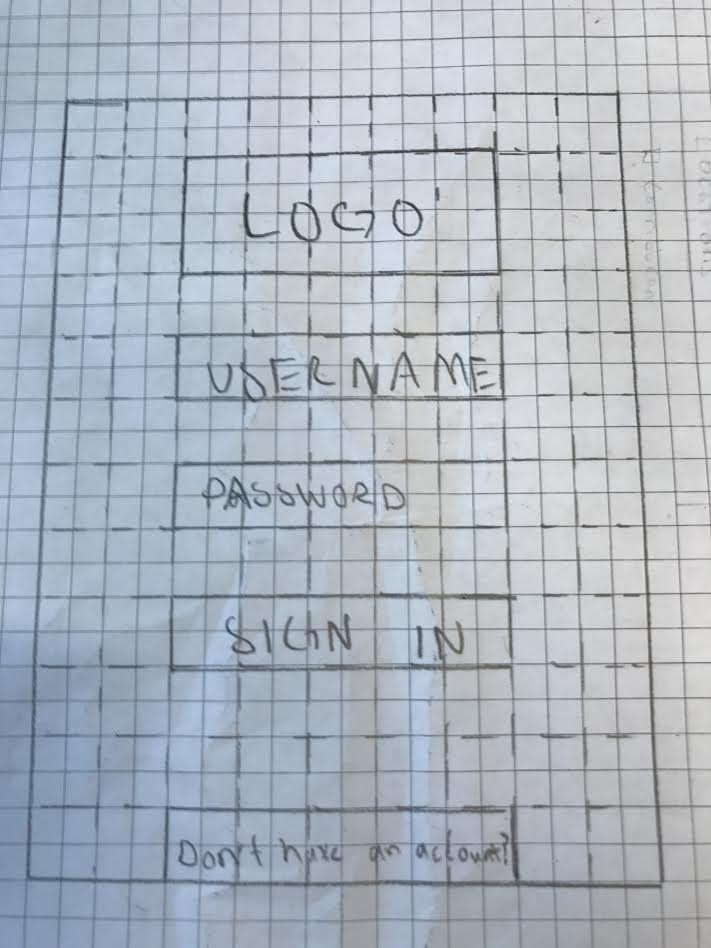 LOGO
USERNAME
PASSWORD
SIGN IN
Don't have an account?